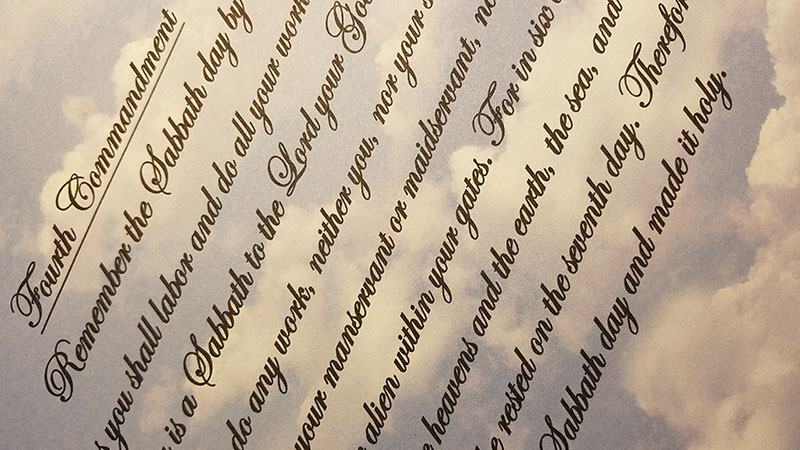 Fourth Commandment
Remember the Sabbath day by
you shall labor and do all your work
is a Sabbath to the Lord your
do any work, neither you, nor your
your manservant or maidservant,
alien within your gates. For in six
heavens and the earth, the sea, and
rested on the seventh day.
Sabbath day and made it holy.